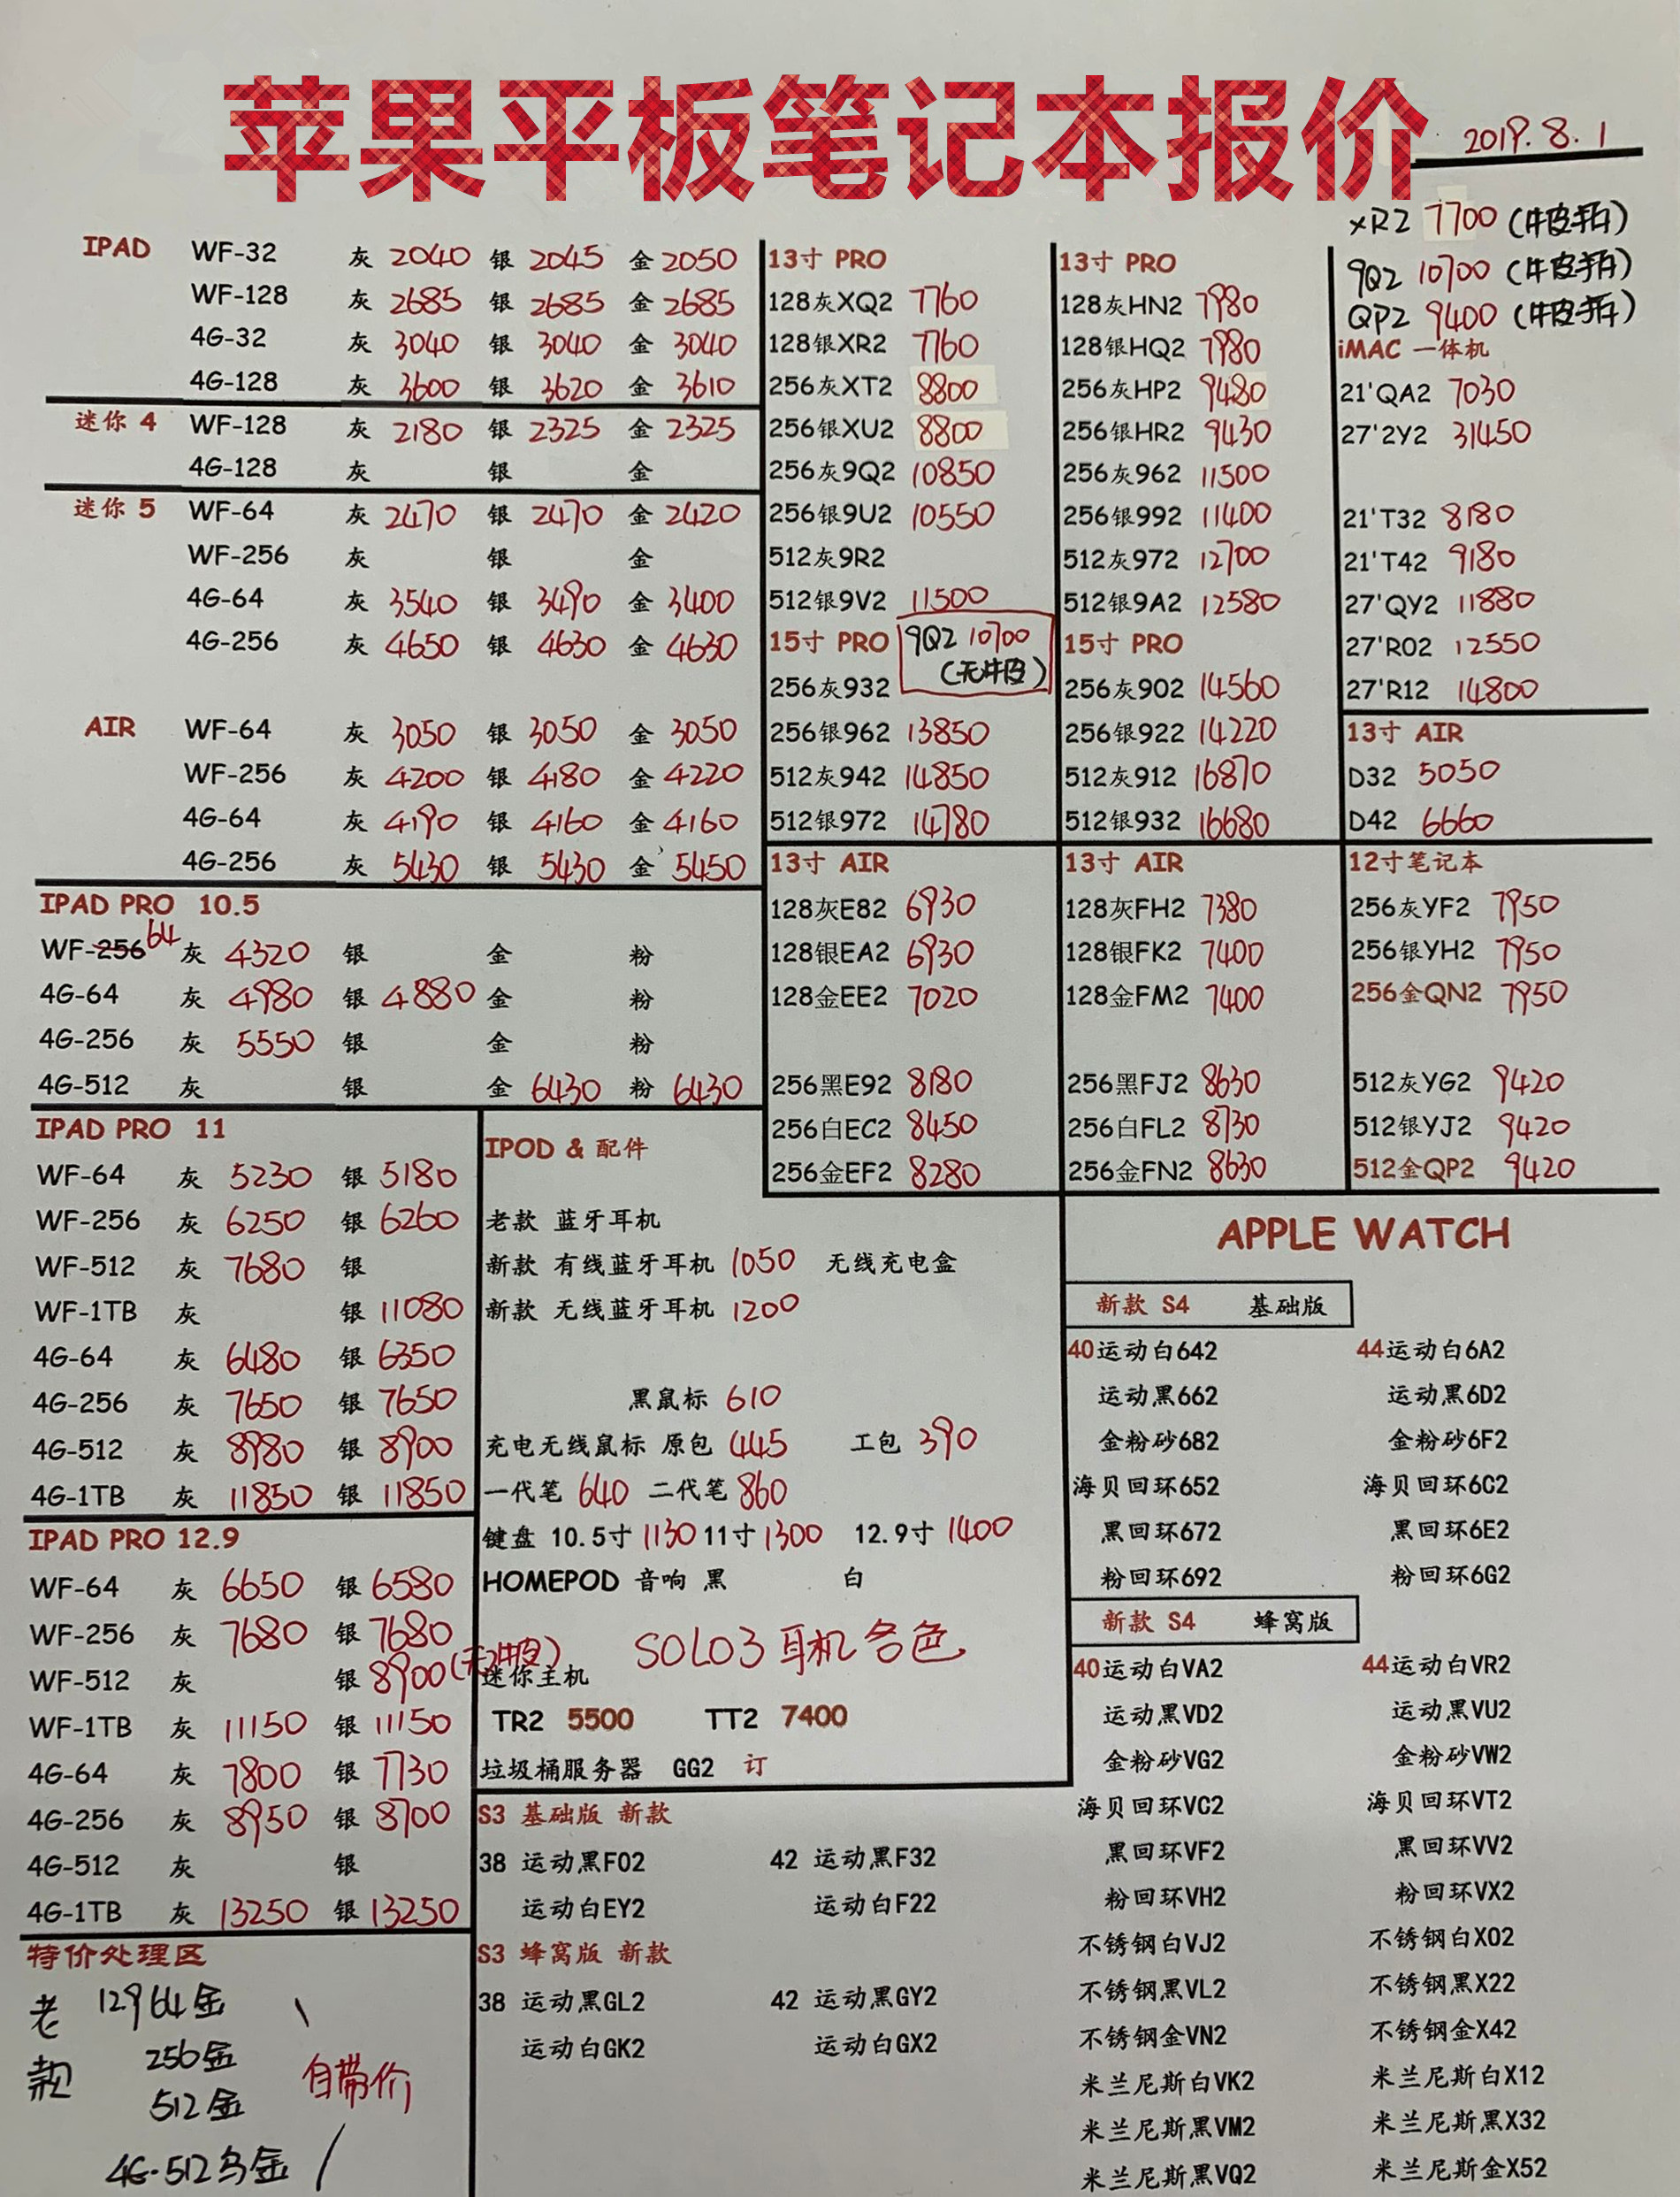 苹果平板笔记本报价
2019.8.1
IPAD WF-32 灰 2040 银 2045 金 2050
WF-128 灰 2685 银 2685 金 2685
4G-32 灰 3040 银 3040 金 3040
4G-128 灰 3600 银 3620 金 3610
迷你 4 WF-128 灰 2180 银 2325 金 2325
4G-128 灰 银 金
迷你 5 WF-64 灰 2470 银 2470 金 2420
WF-256 灰 银 金
4G-64 灰 3540 银 3490 金 3400
4G-256 灰 4650 银 4630 金 4630
AIR WF-64 灰 3050 银 3050 金 3050
WF-256 灰 4200 银 4180 金 4220
4G-64 灰 4190 银 4160 金 4160
4G-256 灰 5430 银 5430 金 5450
IPAD PRO 10.5
WF-256 64 灰 4320 银 金 粉
4G-64 灰 4980 银 4880 金 粉
4G-256 灰 5550 银 金 粉
4G-512 灰 银 金 6430 粉 6430
IPAD PRO 11
WF-64 灰 5230 银 5180
WF-256 灰 6250 银 6260
WF-512 灰 7680 银
WF-1TB 灰 银 11080
4G-64 灰 6480 银 6350
4G-256 灰 7650 银 7650
4G-512 灰 8980 银 8900
4G-1TB 灰 11850 银 11850
IPAD PRO 12.9
WF-64 灰 6650 银 6580
WF-256 灰 7680 银 7680
WF-512 灰 银 8900 (无牛皮)
WF-1TB 灰 11150 银 11150
4G-64 灰 7800 银 7730
4G-256 灰 8950 银 8700
4G-512 灰 银
4G-1TB 灰 13250 银 13250
特价处理区
老款 129 64金
256金
512金
自带价
4G-512乌金
13寸 PRO
128灰XQ2 7760
128银XR2 7760
256灰XT2 8800
256银XU2 8800
256灰9Q2 10850
256银9U2 10550
512灰9R2
512银9V2 11500
15寸 PRO
9Q2 10700
(无牛皮)
256灰932
256银962 13850
512灰942 14850
512银972 14780
13寸 AIR
128灰E82 6930
128银EA2 6930
128金EE2 7020
256黑E92 8180
256白EC2 8450
256金EF2 8280
13寸 PRO
128灰HN2 7980
128银HQ2 7980
256灰HP2 9480
256银HR2 9430
256灰962 11500
256银992 11400
512灰972 12700
512银9A2 12580
15寸 PRO
256灰902 14560
256银922 14220
512灰912 16870
512银932 16680
13寸 AIR
128灰FH2 7380
128银FK2 7400
128金FM2 7400
256黑FJ2 8630
256白FL2 8730
256金FN2 8630
XR2 7700 (牛皮拆)
9Q2 10700 (牛皮拆)
QP2 9400 (牛皮拆)
iMAC 一体机
21'QA2 7030
27'2Y2 31450
21'T32 8180
21'T42 9180
27'QY2 11880
27'R02 12550
27'R12 14800
13寸 AIR
D32 5050
D42 6660
12寸笔记本
256灰YF2 7950
256银YH2 7950
256金QN2 7950
512灰YG2 9420
512银YJ2 9420
512金QP2 9420
IPOD & 配件
老款 蓝牙耳机
新款 有线蓝牙耳机 1050 无线充电盒
新款 无线蓝牙耳机 1200
黑鼠标 610
充电无线鼠标 原包 445 工包 390
一代笔 640 二代笔 860
键盘 10.5寸 1130 11寸 1300 12.9寸 1400
HOMEPOD 音响 黑 白
SOLO3 耳机 各色
迷你主机
TR2 5500 TT2 7400
垃圾桶服务器 GG2 订
S3 基础版 新款
38 运动黑F02 42 运动黑F32
运动白EY2 运动白F22
S3 蜂窝版 新款
38 运动黑GL2 42 运动黑GY2
运动白GK2 运动白GX2
APPLE WATCH
新款 S4 基础版
40运动白642 44运动白6A2
运动黑662 运动黑6D2
金粉砂682 金粉砂6F2
海贝回环652 海贝回环6C2
黑回环672 黑回环6E2
粉回环692 粉回环6G2
新款 S4 蜂窝版
40运动白VA2 44运动白VR2
运动黑VD2 运动黑VU2
金粉砂VG2 金粉砂VW2
海贝回环VC2 海贝回环VT2
黑回环VF2 黑回环VV2
粉回环VH2 粉回环VX2
不锈钢白VJ2 不锈钢白X02
不锈钢黑VL2 不锈钢黑X22
不锈钢金VN2 不锈钢金X42
米兰尼斯白VK2 米兰尼斯白X12
米兰尼斯黑VM2 米兰尼斯黑X32
米兰尼斯黑VQ2 米兰尼斯金X52